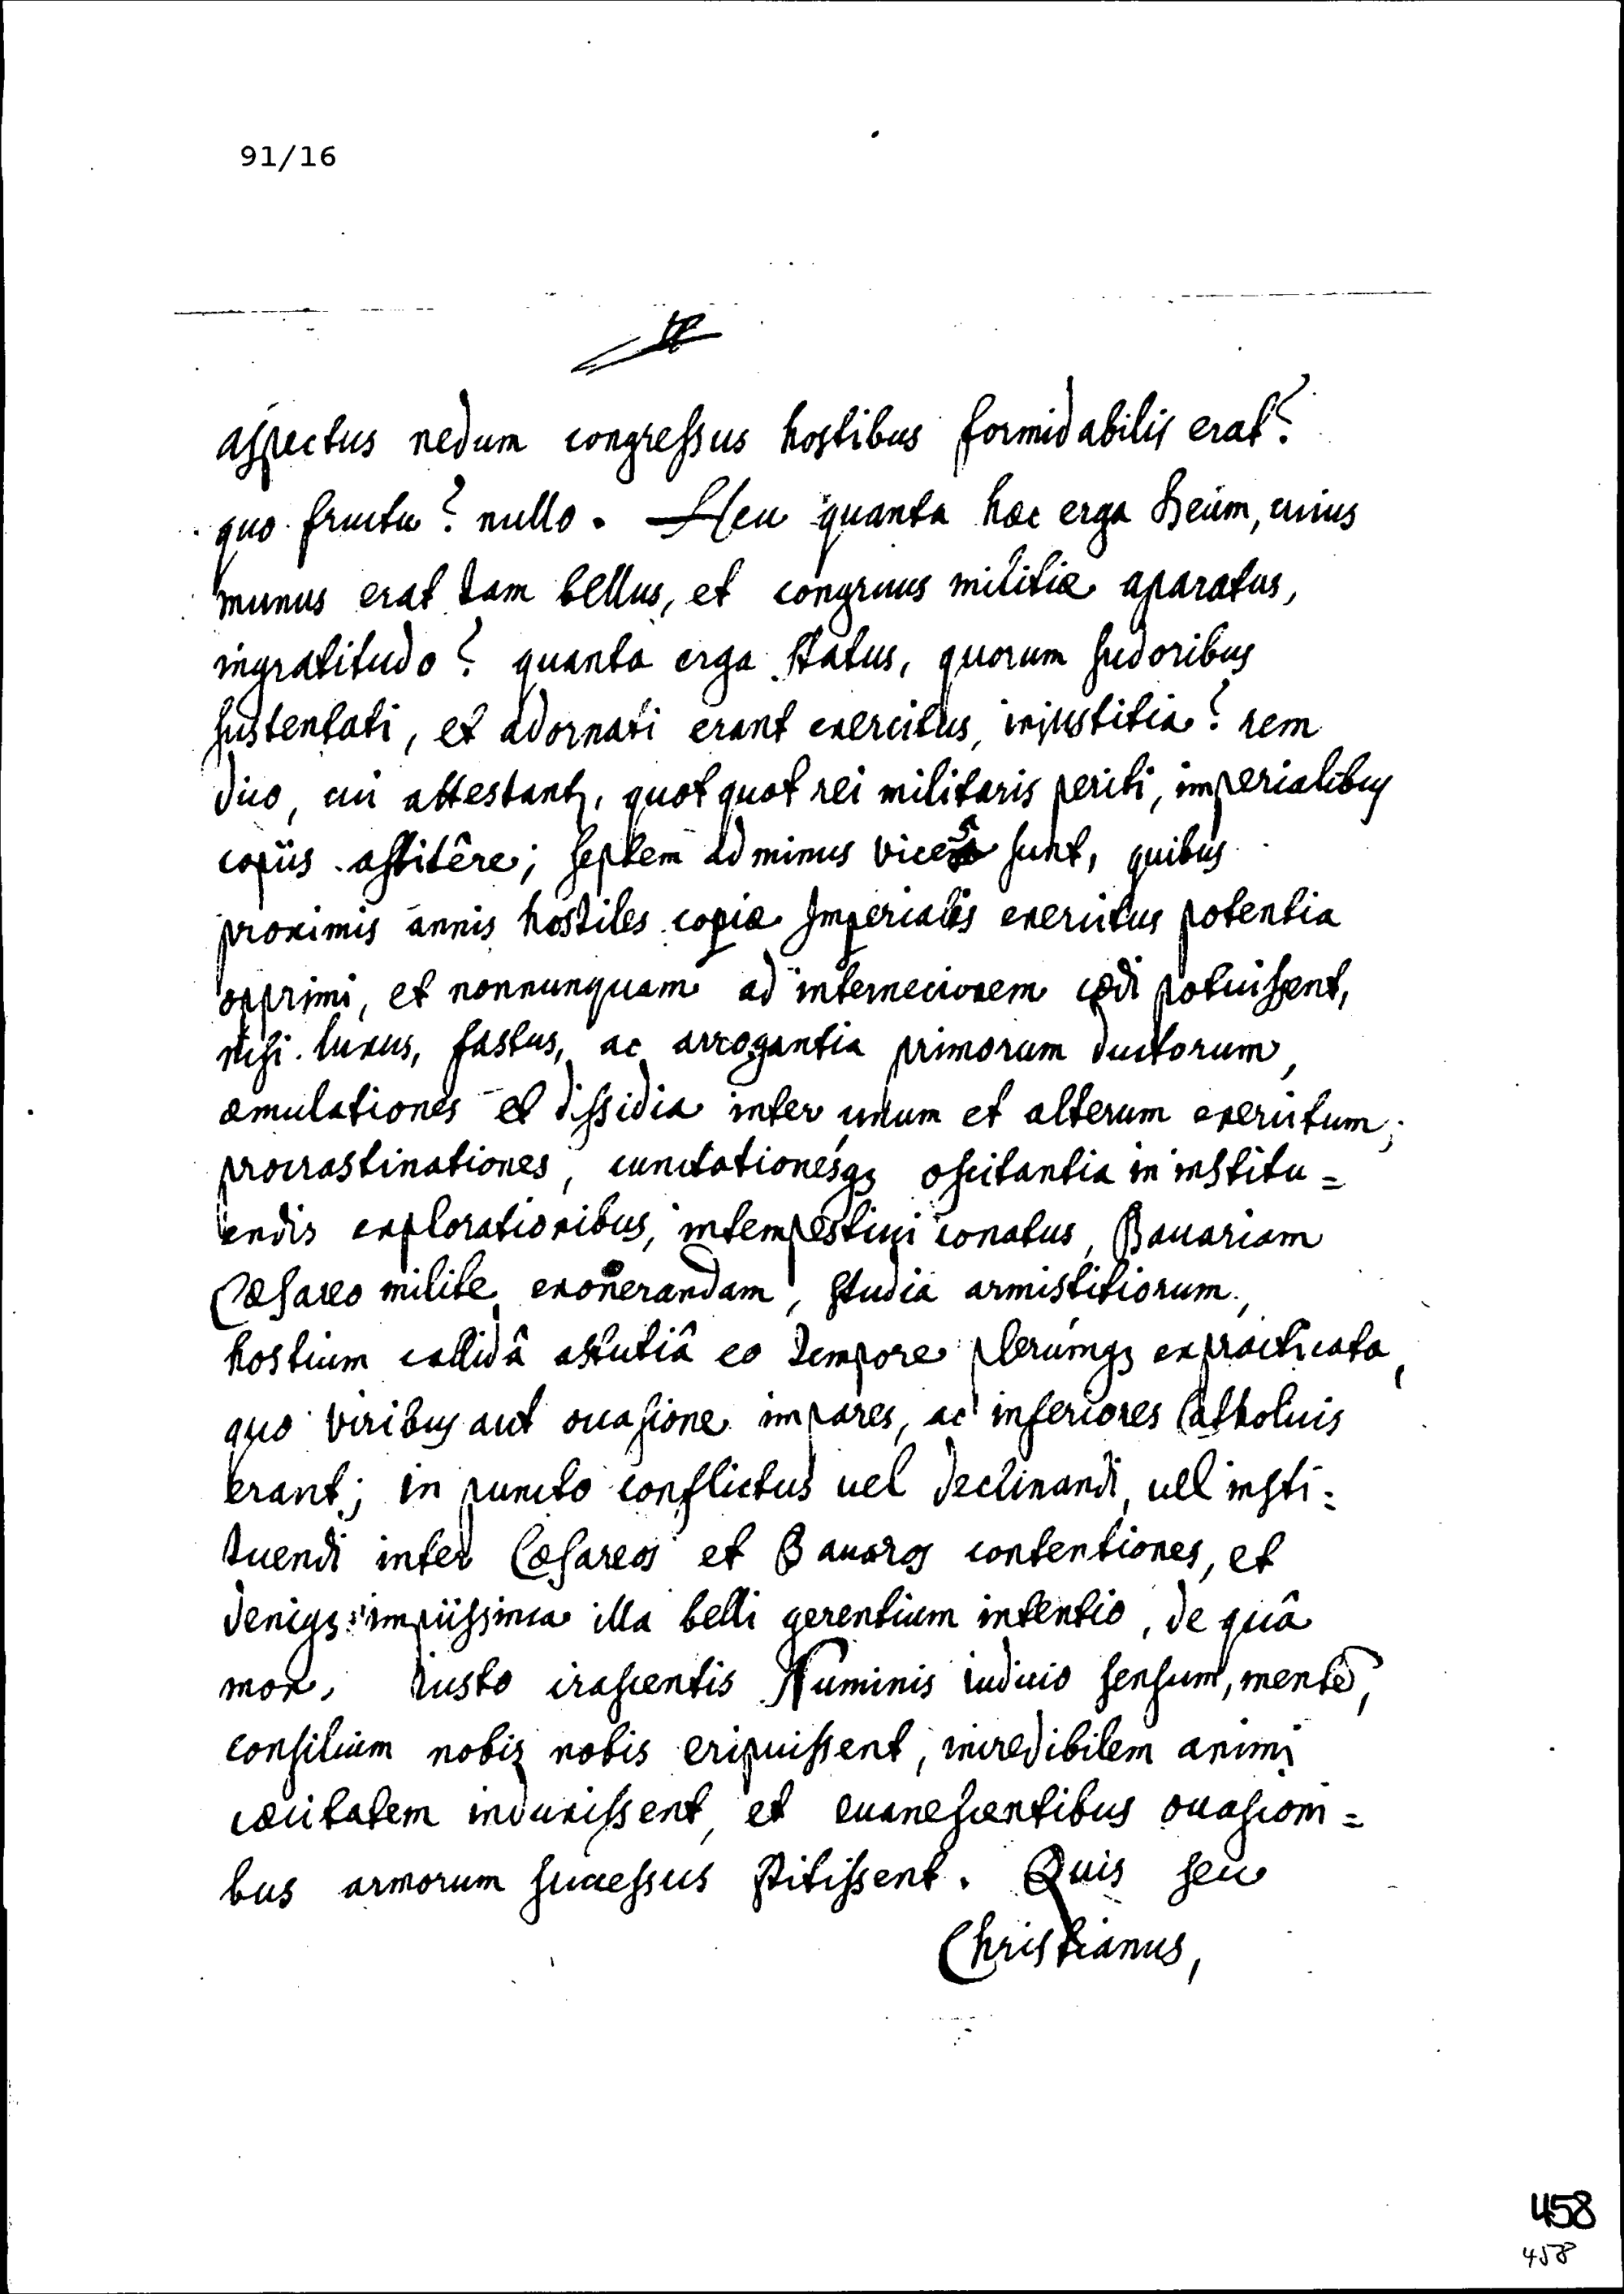 91/16
aspectus nedum congressus hostibus formidabilis erat?
quo fructu? nullo. Heu quanta hæc erga Deum, cuius
munus erat tam bellus, et congruus militiæ aparatus,
ingratitudo? quanta erga status, quorum sudoribus
sustentati, et adornati erant exercitus, injustitia? rem
dico, cui attestantr, quot quot rei militaris periti, imperialibus
copiis astitêre; septem ad minus vices sunt, quibus
proximis annis hostiles copiæ Imperialis exercitus potentia
opprimi, et nonnunquam ad internecionem cædi potuissent,
nisi luxus, fastus, ac arrogantia primorum ductorum,
æmulationes et dissidia inter unum et alterum exercitum;
procrastinationes, cunctationésqz oscitantia in institu=
endis explorationibus, intempestiui conatus, Bauariam
Cæsareo milite exonerandam, studia armistitiorum,
hostium callidâ astutiâ eo tempore plerúmqz expracticata,
quo viribus aut occasione impares, ac inferiores Catholicis
erant; in puncto conflictus uel declinandi, uel insti=
tuendi inter Cæsareos et Bauaros contentiones, et
deniqz impiissima illa belli gerentium intentio, de quâ
mox, iusto irascentis Numinis iudicio sensum, mentē,
consilium nobis nobis eripuissent, incredibilem animi
cæcitatem induxissent, et euanescentibus occasioni=
bus armorum successus stitissent. Quis seu
Christianus,
458
458